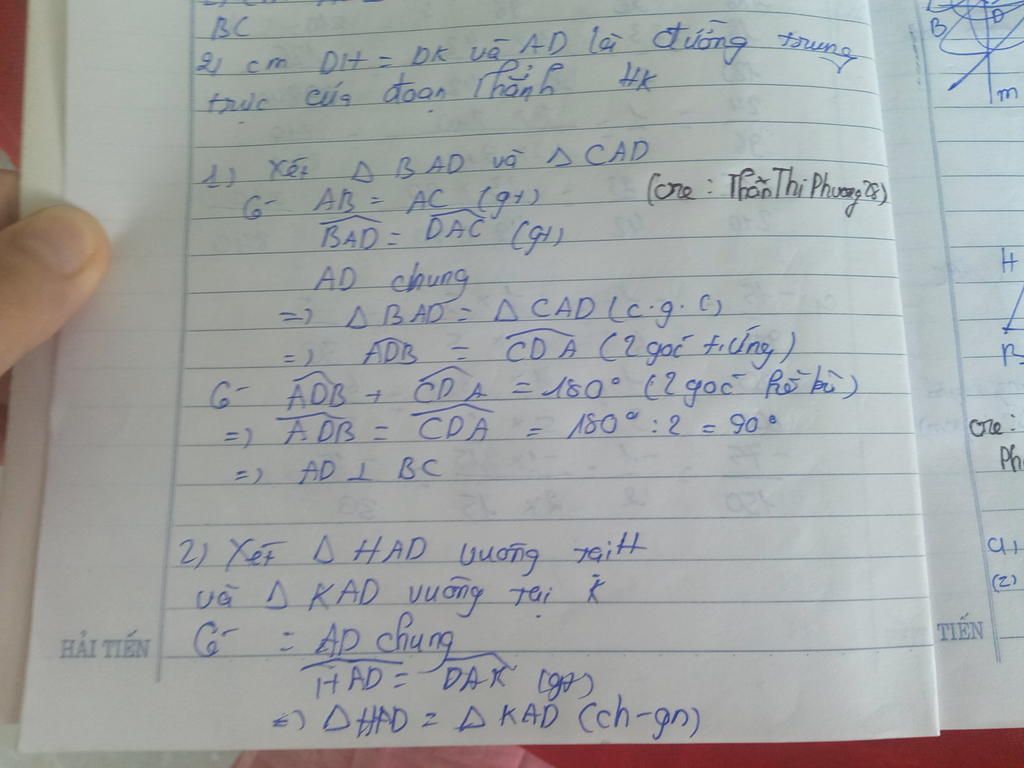 BC
2) cm DH = DK và AD là đường trung
trực của đoạn thẳng HK
1) Xét Δ BAD và Δ CAD
Có AB = AC (gt)
(Cre: Thần Thị Phương 78)
BAD = DAC (gt)
AD chung
=> Δ BAD = Δ CAD (c.g.c)
=> ADB = CDA (2 góc t.ứng)
Có ADB + CDA = 180° (2 góc kề bù)
=> ADB = CDA = 180° : 2 = 90°
=> AD ⊥ BC
2) Xét Δ HAD vuông tại H
và Δ KAD vuông tại K
Có = AD chung
HAD = DAK (gt)
=> Δ HAD = Δ KAD (ch-gn)
HẢI TIẾN
B
D
m
H
Cre:
TIẾN